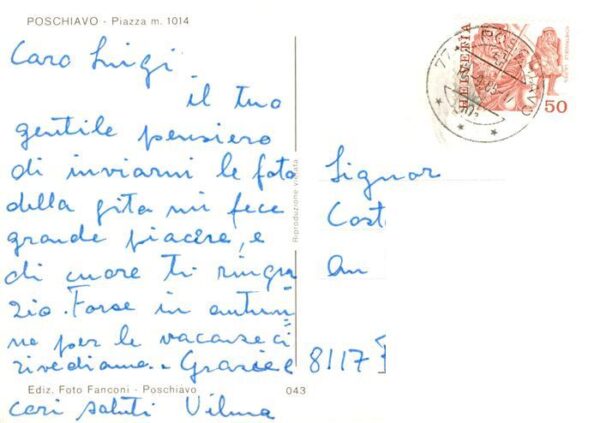 POSCHIAVO - Piazza m. 1014
Caro Luigi
il tuo
gentile pensiero
di inviarmi le foto
della gita mi fece
grande piacere, e
di cuore ti ringra
zio. Forse in autun=
no per le vacanze ci
rivediamo. - Grazie e
cari saluti Vilma
Ediz. Foto Fanconi - Poschiavo
043
Riproduzione vietata
HELVETIA
50
POSCHIAVO
Signor
Cost
An
8117